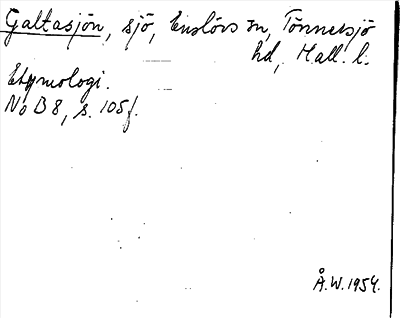 Galtasjön, sjö, Enslövs sn, Tönnersjö
hd, Hall. l.
Etymologi.
No B 8, s. 105 f.
Å.W. 1954.